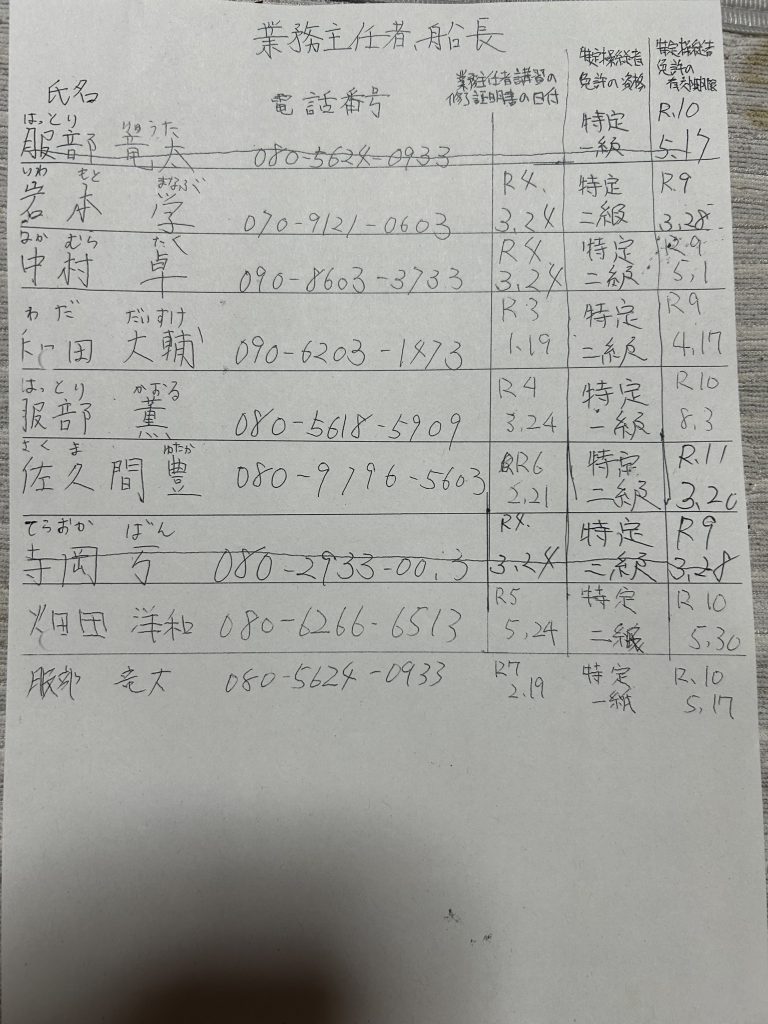 業務主任者、船長
氏名 電話番号 業務主任者講習の修了証明書の日付 特定操縦者免許の資格 特定操縦者免許の有効期限
はっとり りゅうた
服部 竜太 080-5624-0933 特定一級 R.10 5.17
いわ もと まなぶ
岩本 学 070-9121-0603 R4. 3.24 特定二級 R.9 3.28
なか むら たく
中村 卓 090-8603-3733 R4. 3.24 特定二級 R.9 5.1
わだ だいすけ
和田 大輔 090-6203-1473 R3 1.19 特定二級 R9 4.17
はっとり かおる
服部 薫 080-5618-5909 R4 3.24 特定一級 R10 8.3
さくま ゆたか
佐久間 豊 080-9796-5603 R6 2.21 特定二級 R.11 3.20
てらおか ばん
寺岡 080-2933-00 R4. 3.24 特定二級 R9 3.28
畑田 洋和 080-6266-6513 R5 5.24 特定二級 R10 5.30
服部 竜太 080-5624-0933 R7 2.19 特定一級 R.10 5.17